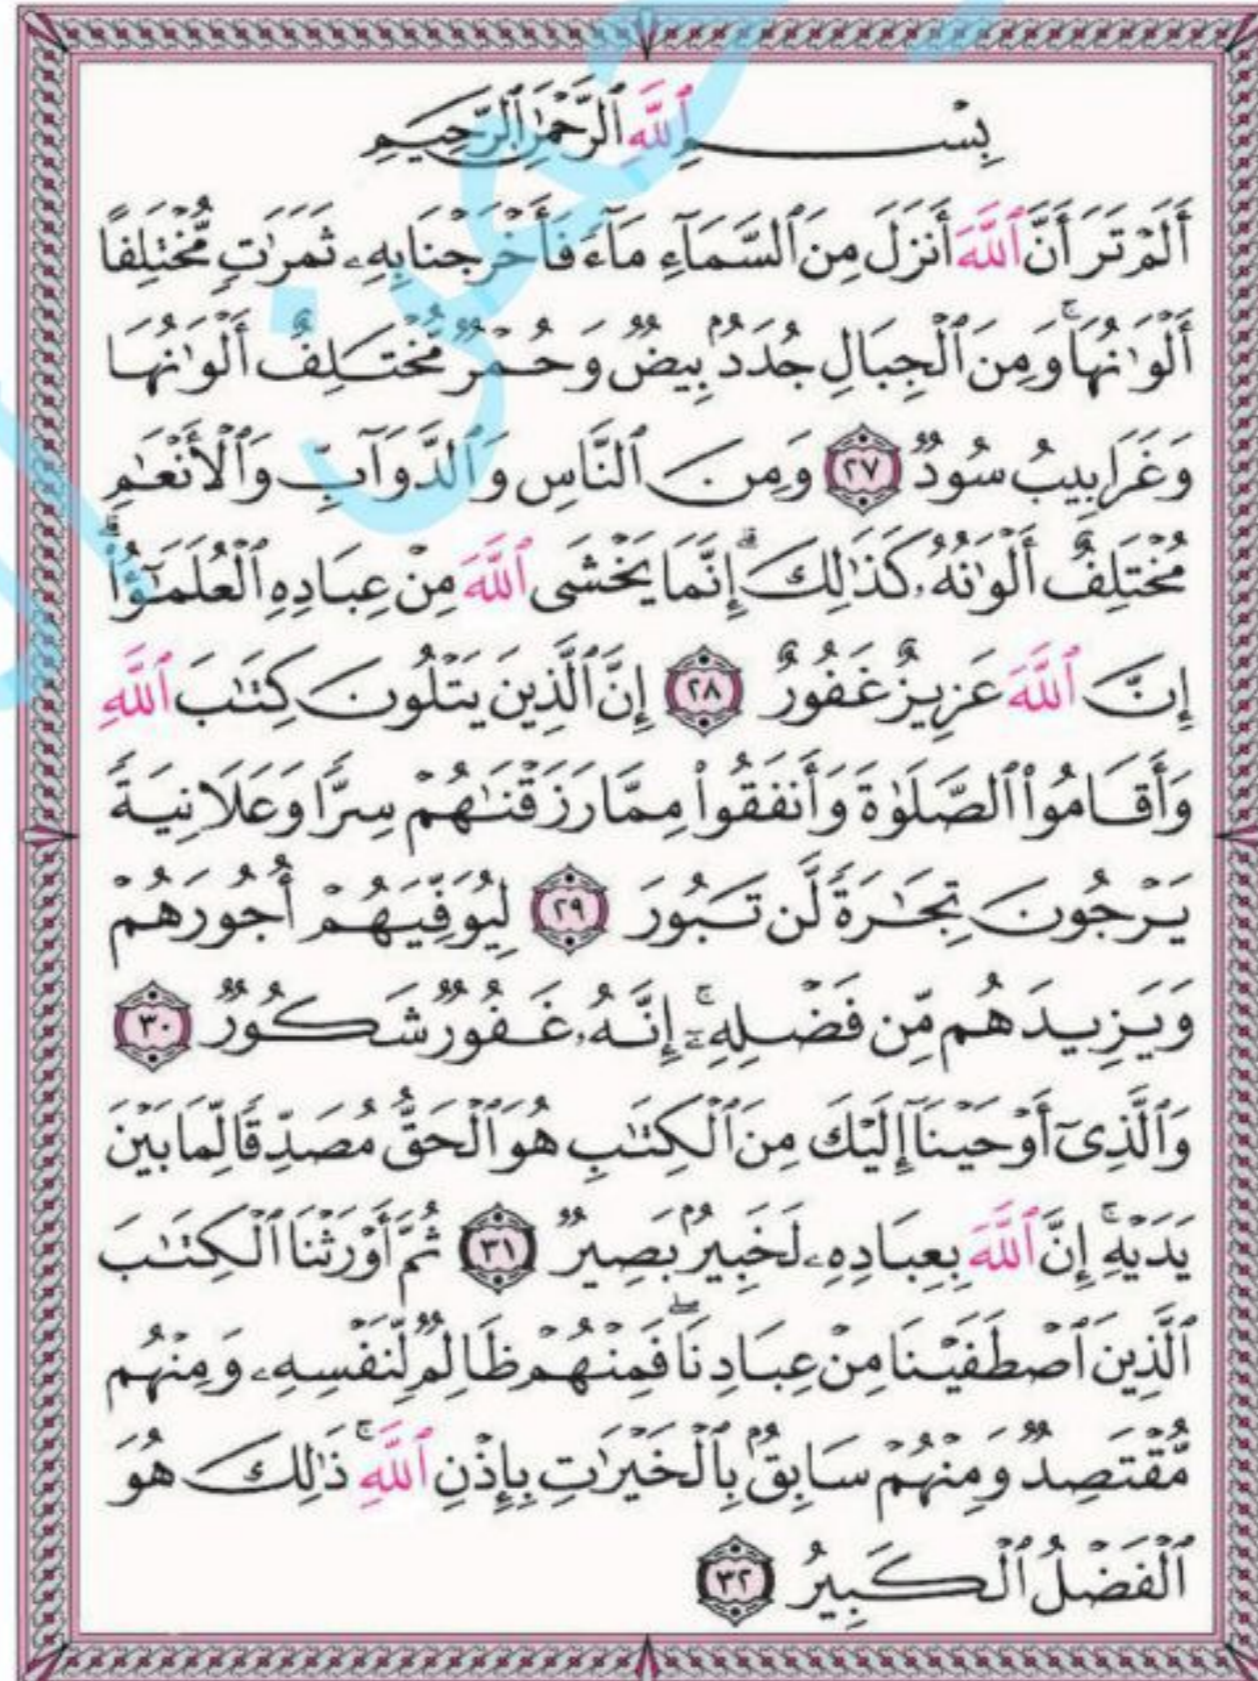 بِسْمِ ٱللَّهِ ٱلرَّحْمَٰنِ ٱلرَّحِيمِ
أَلَمْ تَرَ أَنَّ ٱللَّهَ أَنزَلَ مِنَ ٱلسَّمَآءِ مَآءً فَأَخْرَجْنَا بِهِۦ ثَمَرَٰتٍ مُّخْتَلِفًا
أَلْوَٰنُهَا ۚ وَمِنَ ٱلْجِبَالِ جُدَدٌۢ بِيضٌ وَحُمْرٌ مُّخْتَلِفٌ أَلْوَٰنُهَا
وَغَرَابِيبُ سُودٌ ٢٧ وَمِنَ ٱلنَّاسِ وَٱلدَّوَآبِّ وَٱلْأَنْعَٰمِ
مُخْتَلِفٌ أَلْوَٰنُهُۥ كَذَٰلِكَ ۗ إِنَّمَا يَخْشَى ٱللَّهَ مِنْ عِبَادِهِ ٱلْعُلَمَٰٓؤُا۟ ۗ
إِنَّ ٱللَّهَ عَزِيزٌ غَفُورٌ ٢٨ إِنَّ ٱلَّذِينَ يَتْلُونَ كِتَٰبَ ٱللَّهِ
وَأَقَامُوا۟ ٱلصَّلَوٰةَ وَأَنفَقُوا۟ مِمَّا رَزَقْنَٰهُمْ سِرًّا وَعَلَانِيَةً
يَرْجُونَ تِجَٰرَةً لَّن تَبُورَ ٢٩ لِيُوَفِّيَهُمْ أُجُورَهُمْ
وَيَزِيدَهُم مِّن فَضْلِهِۦٓ ۚ إِنَّهُۥ غَفُورٌ شَكُورٌ ٣٠
وَٱلَّذِىٓ أَوْحَيْنَآ إِلَيْكَ مِنَ ٱلْكِتَٰبِ هُوَ ٱلْحَقُّ مُصَدِّقًا لِّمَا بَيْنَ
يَدَيْهِ ۗ إِنَّ ٱللَّهَ بِعِبَادِهِۦ لَخَبِيرٌۢ بَصِيرٌ ٣١ ثُمَّ أَوْرَثْنَا ٱلْكِتَٰبَ
ٱلَّذِينَ ٱصْطَفَيْنَا مِنْ عِبَادِنَا ۖ فَمِنْهُمْ ظَالِمٌ لِّنَفْسِهِۦ وَمِنْهُم
مُّقْتَصِدٌ وَمِنْهُمْ سَابِقٌۢ بِٱلْخَيْرَٰتِ بِإِذْنِ ٱللَّهِ ۚ ذَٰلِكَ هُوَ
ٱلْفَضْلُ ٱلْكَبِيرُ ٣٢